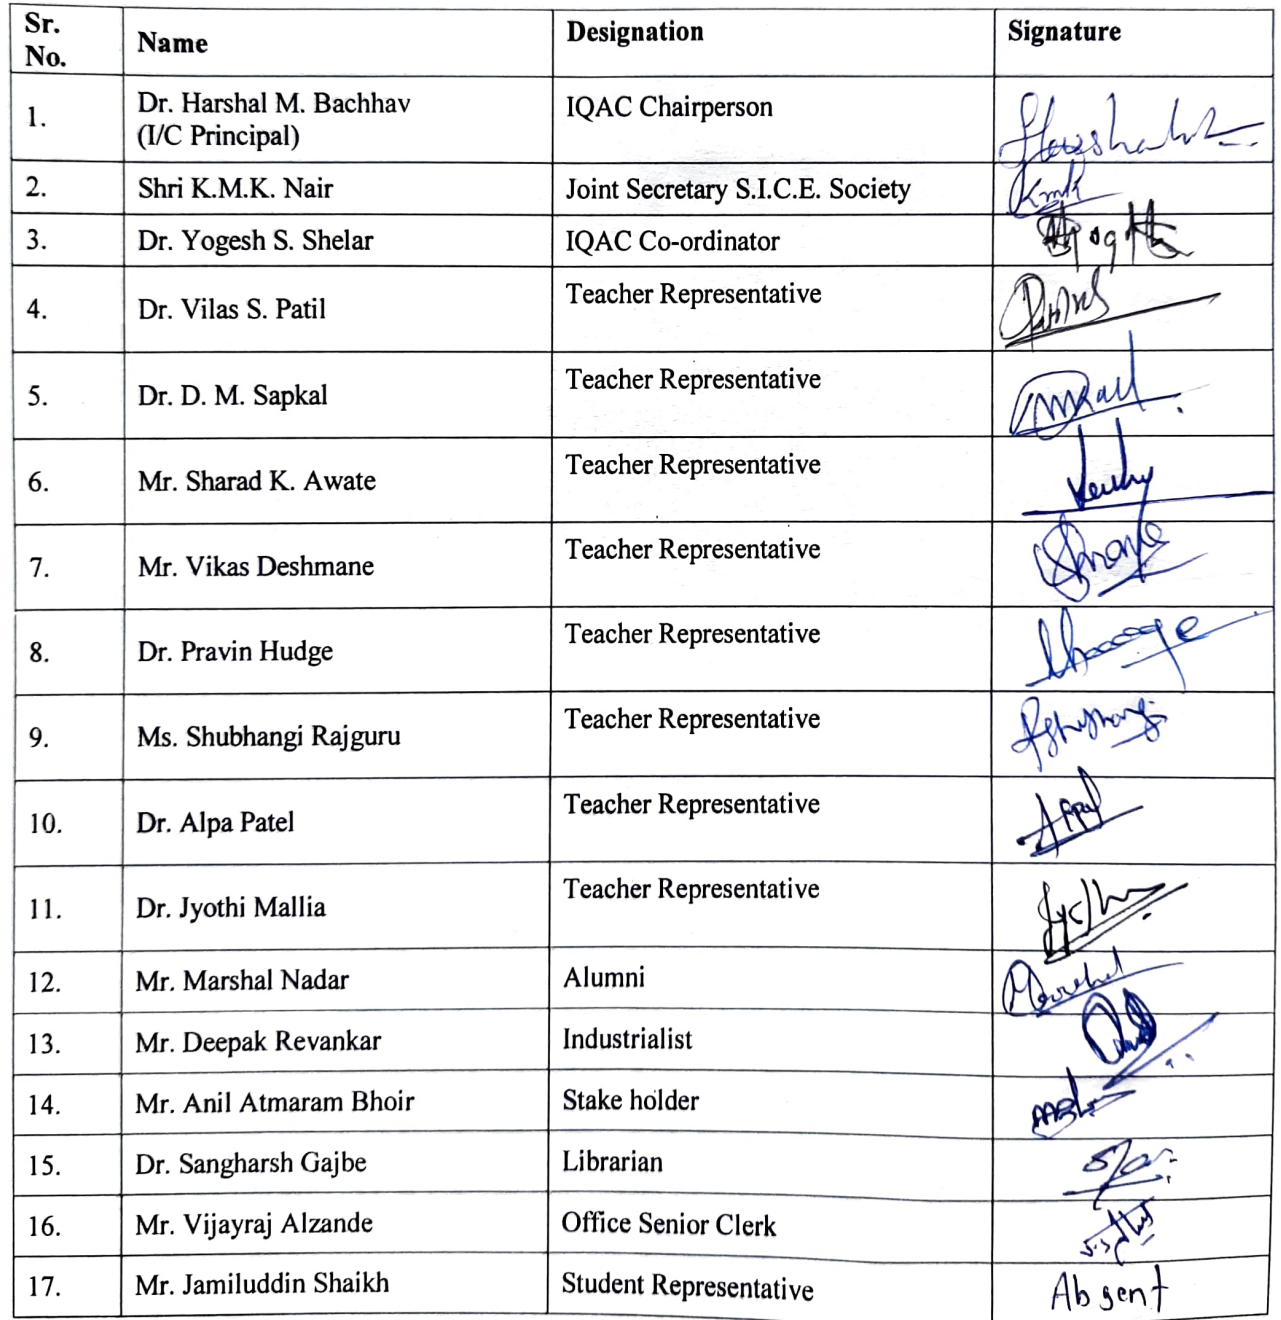 Sr. No. Name Designation Signature
1. Dr. Harshal M. Bachhav (I/C Principal) IQAC Chairperson
2. Shri K.M.K. Nair Joint Secretary S.I.C.E. Society Kmk
3. Dr. Yogesh S. Shelar IQAC Co-ordinator
4. Dr. Vilas S. Patil Teacher Representative
5. Dr. D. M. Sapkal Teacher Representative
6. Mr. Sharad K. Awate Teacher Representative
7. Mr. Vikas Deshmane Teacher Representative
8. Dr. Pravin Hudge Teacher Representative
9. Ms. Shubhangi Rajguru Teacher Representative
10. Dr. Alpa Patel Teacher Representative
11. Dr. Jyothi Mallia Teacher Representative
12. Mr. Marshal Nadar Alumni
13. Mr. Deepak Revankar Industrialist
14. Mr. Anil Atmaram Bhoir Stake holder
15. Dr. Sangharsh Gajbe Librarian
16. Mr. Vijayraj Alzande Office Senior Clerk
17. Mr. Jamiluddin Shaikh Student Representative Absent